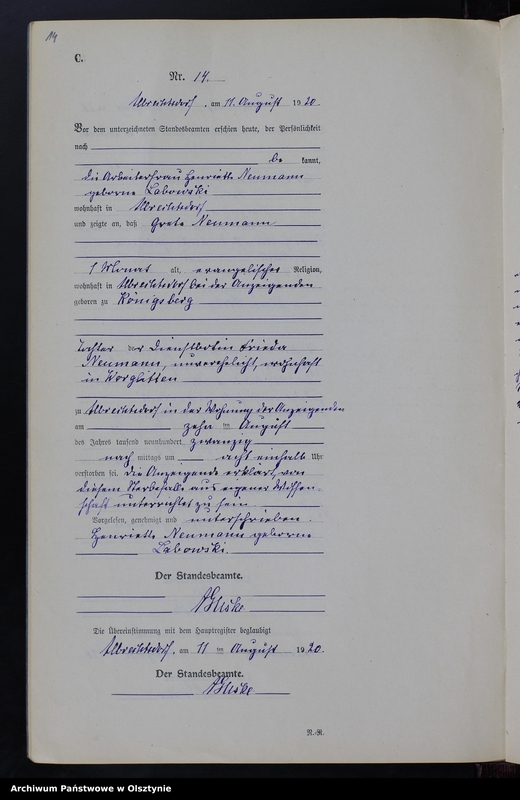 14
C.
Nr. 14.
Albrechtsdorf, am 11. August 1920.
Vor dem unterzeichneten Standesbeamten erschien heute, der Persönlichkeit
nach
be kannt,
die Arbeiterfrau Henriette Neumann
geborne Labowski
wohnhaft in Albrechtsdorf
und zeigte an, daß Grete Neumann
1 Monat alt, evangelischer Religion,
wohnhaft in Albrechtsdorf bei der Anzeigenden
geboren zu Königsberg
Tochter der Dienstbotin Frieda
Neumann, unverehelicht, wohnhaft
in Worglitten
zu Albrechtsdorf in der Wohnung der Anzeigenden
am zehn ten August
des Jahres tausend neunhundert zwanzig
nach mittags um acht einhalb Uhr
verstorben sei. Die Anzeigende erklärt, von
diesem Sterbefalle aus eigener Wissen
schaft unterrichtet zu sein
Vorgelesen, genehmigt und unterschrieben.
Henriette Neumann geborne
Labowski.
Der Standesbeamte.
Die Übereinstimmung mit dem Hauptregister beglaubigt
Albrechtsdorf, am 11 ten August 1920.
Der Standesbeamte.
N.-R.
Archiwum Państwowe w Olsztynie